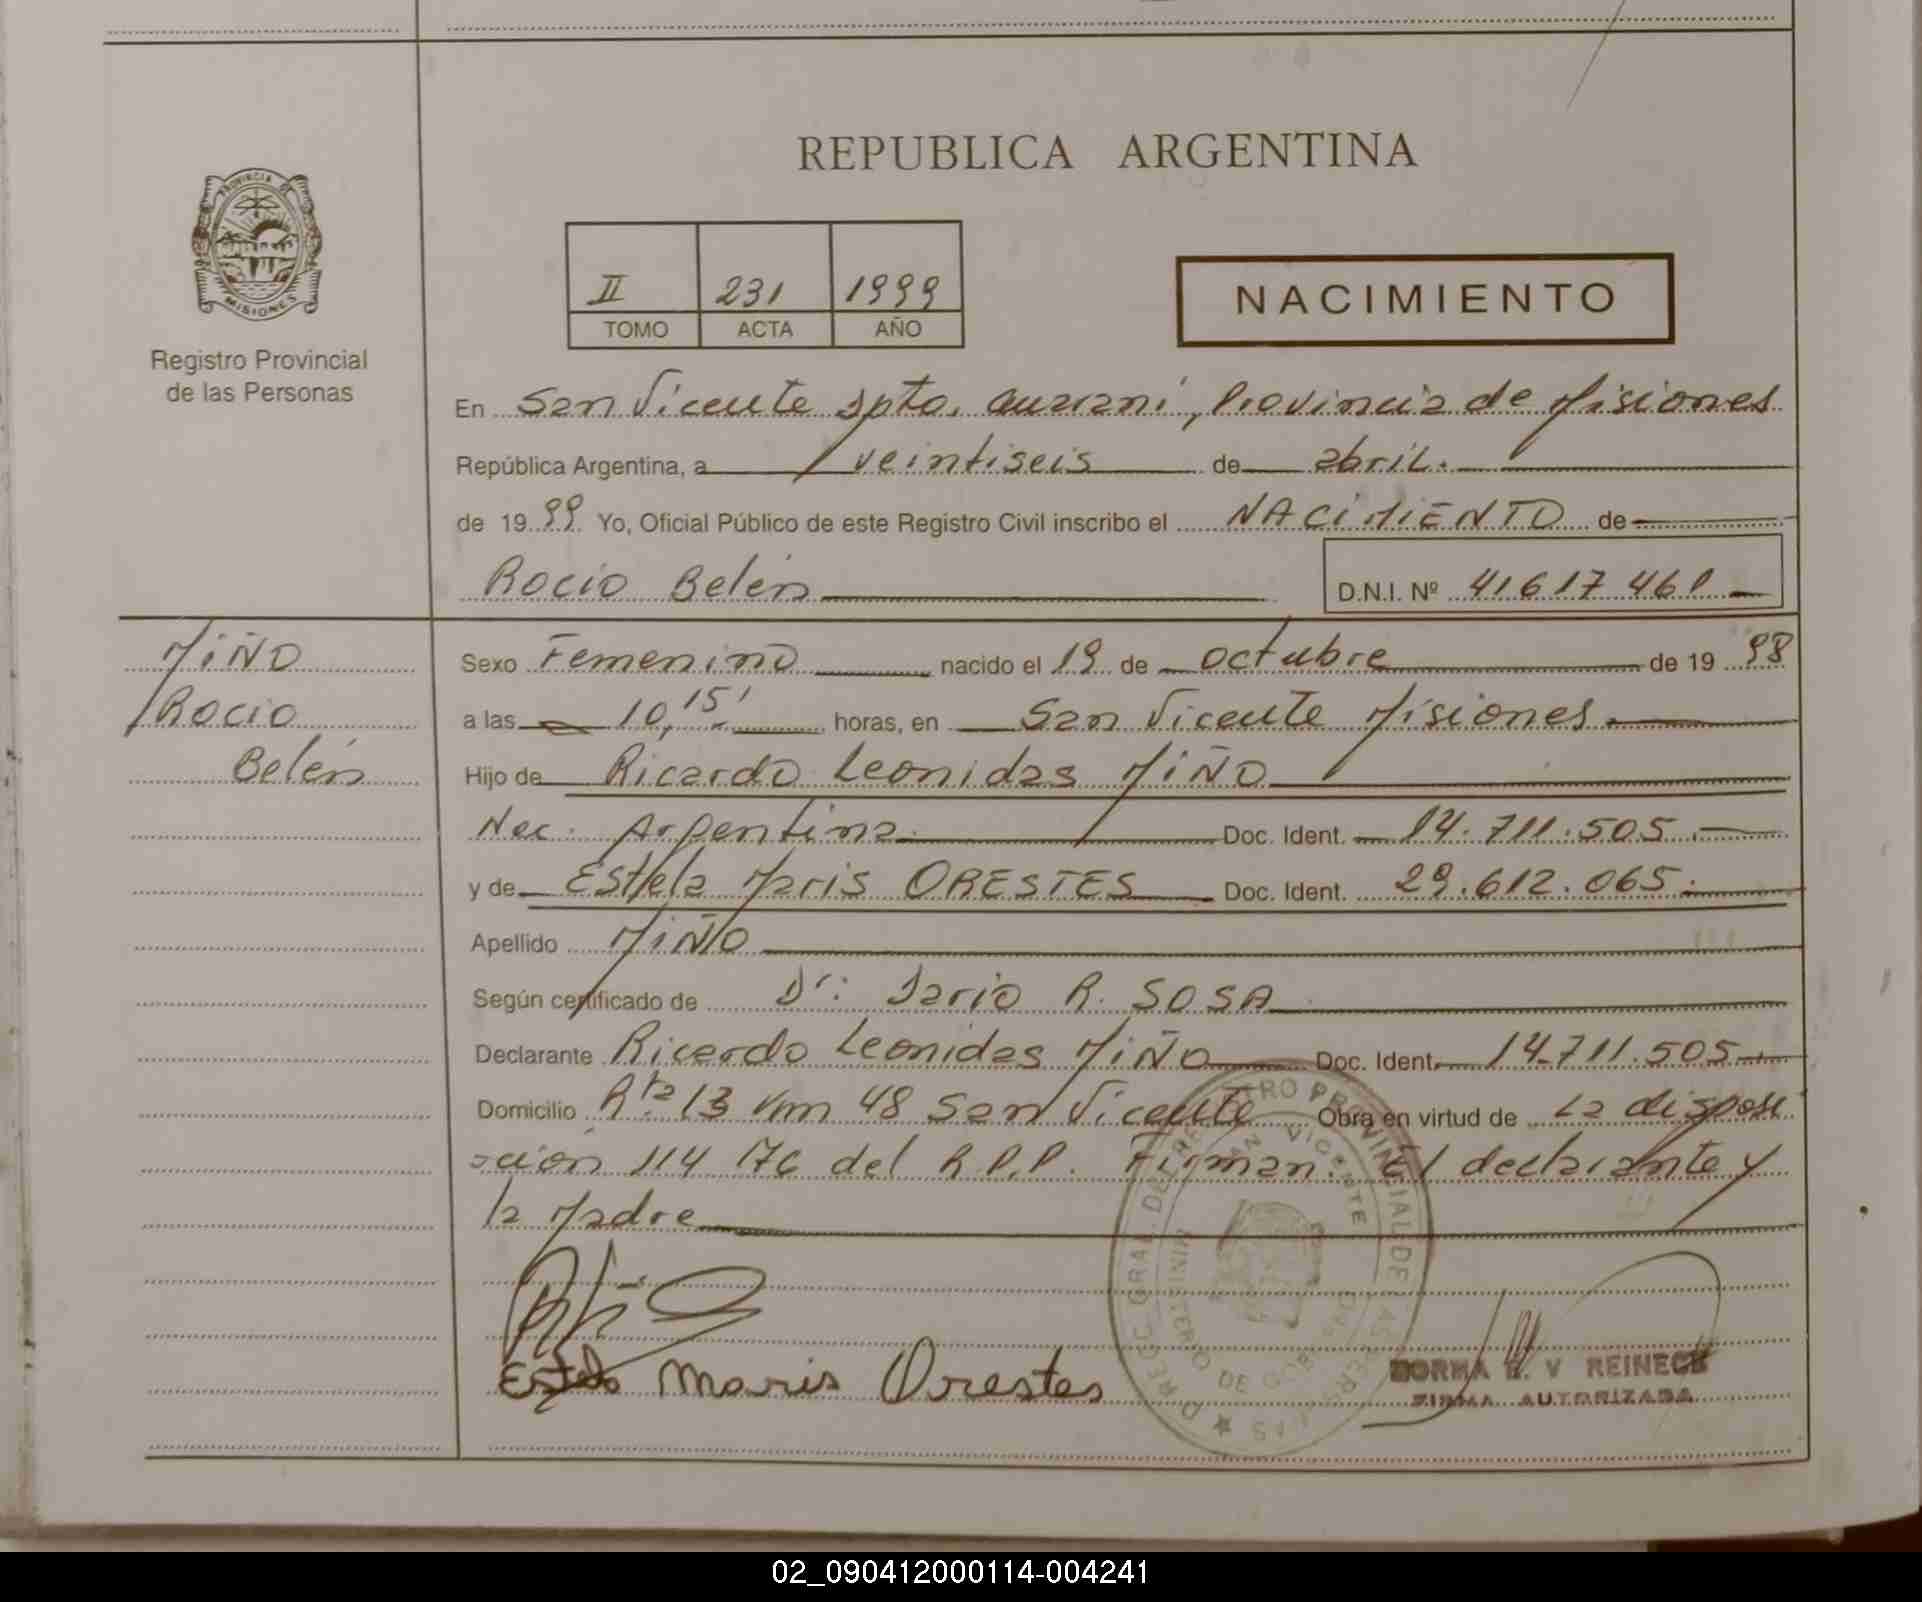 REPUBLICA ARGENTINA
PROVINCIA DE
MISIONES
Registro Provincial
de las Personas
II 231 1999
TOMO ACTA AÑO
NACIMIENTO
En San Vicente Dpto. Guaraní, Provincia de Misiones
República Argentina, a veintiseis de abril.
de 19 99 Yo, Oficial Público de este Registro Civil inscribo el NACIMIENTO de
Rocio Belén D.N.I. Nº 41617461
MIÑO
Rocio
Belén
Sexo Femenino nacido el 19 de octubre de 19 98
a las 10,15' horas, en San Vicente Misiones
Hijo de Ricardo Leonidas MIÑO
Nac. Argentina Doc. Ident. 14.711.505
y de Estela Maris ORESTES Doc. Ident. 29.612.065.
Apellido MIÑO
Según certificado de Dr: Dario R. SOSA
Declarante Ricardo Leonidas MIÑO Doc. Ident. 14.711.505
Domicilio Rta 13 Km 48 San Vicente Obra en virtud de La disposi
ción 114/76 del R.P.P. Firman: El declarante y
la Madre
Estela Maris Orestes
NORMA V REINECK
FIRMA AUTORIZADA
02_090412000114-004241